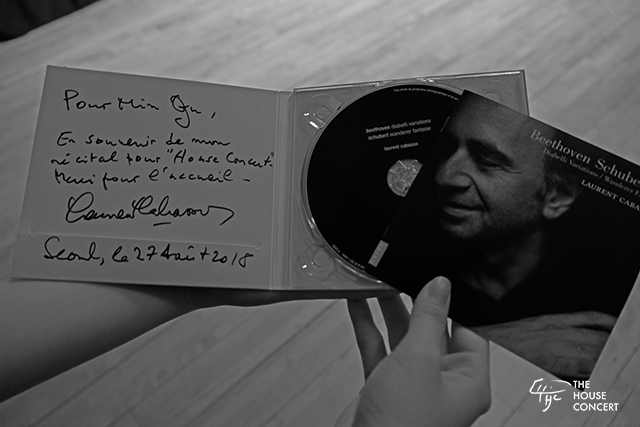 Pour Min Qu,
En souvenir de mon
récital pour "House Concert"
Merci pour l'accueil –
Laurent Cabasso
Seoul, le 27 Août 2018
beethoven diabelli variations
schubert wanderer fantasie
laurent cabasso
Beethoven Schube
Diabelli Variations / Wanderer F
LAURENT CABA
THE
HOUSE
CONCERT